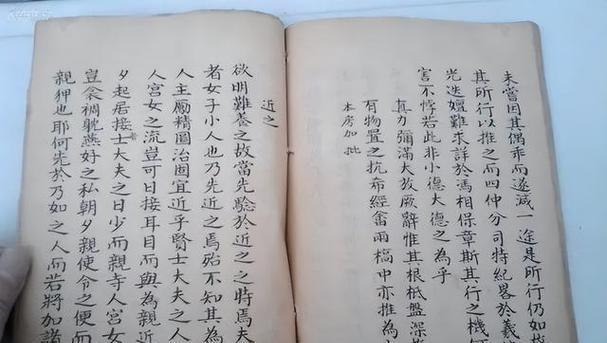 未嘗因其偶乖而遂減一途是所行仍如故
其所行以推之而四仲分司特紀畧於義
光迭嬗難求詳於馮相保章斯其行之機
言不悖若此非小德大德之為乎
真力彌滿大放厥辭惟其根柢盤深
有物置之抗希經畬兩稿中亦推為
本房加批
近之
欲明難養之故當先驗於近之之時焉夫
者女子小人也乃先近之焉殆不知其為
人主勵精圖治固宜近乎賢士大夫之人
人宮女之流豈可日接耳目而與為親近
夕起居接士大夫之日少而親寺人宮女
豈衾裯躭燕好之私朝夕親使令之便而
親狎也耶何先於乃如之人而若將加諸